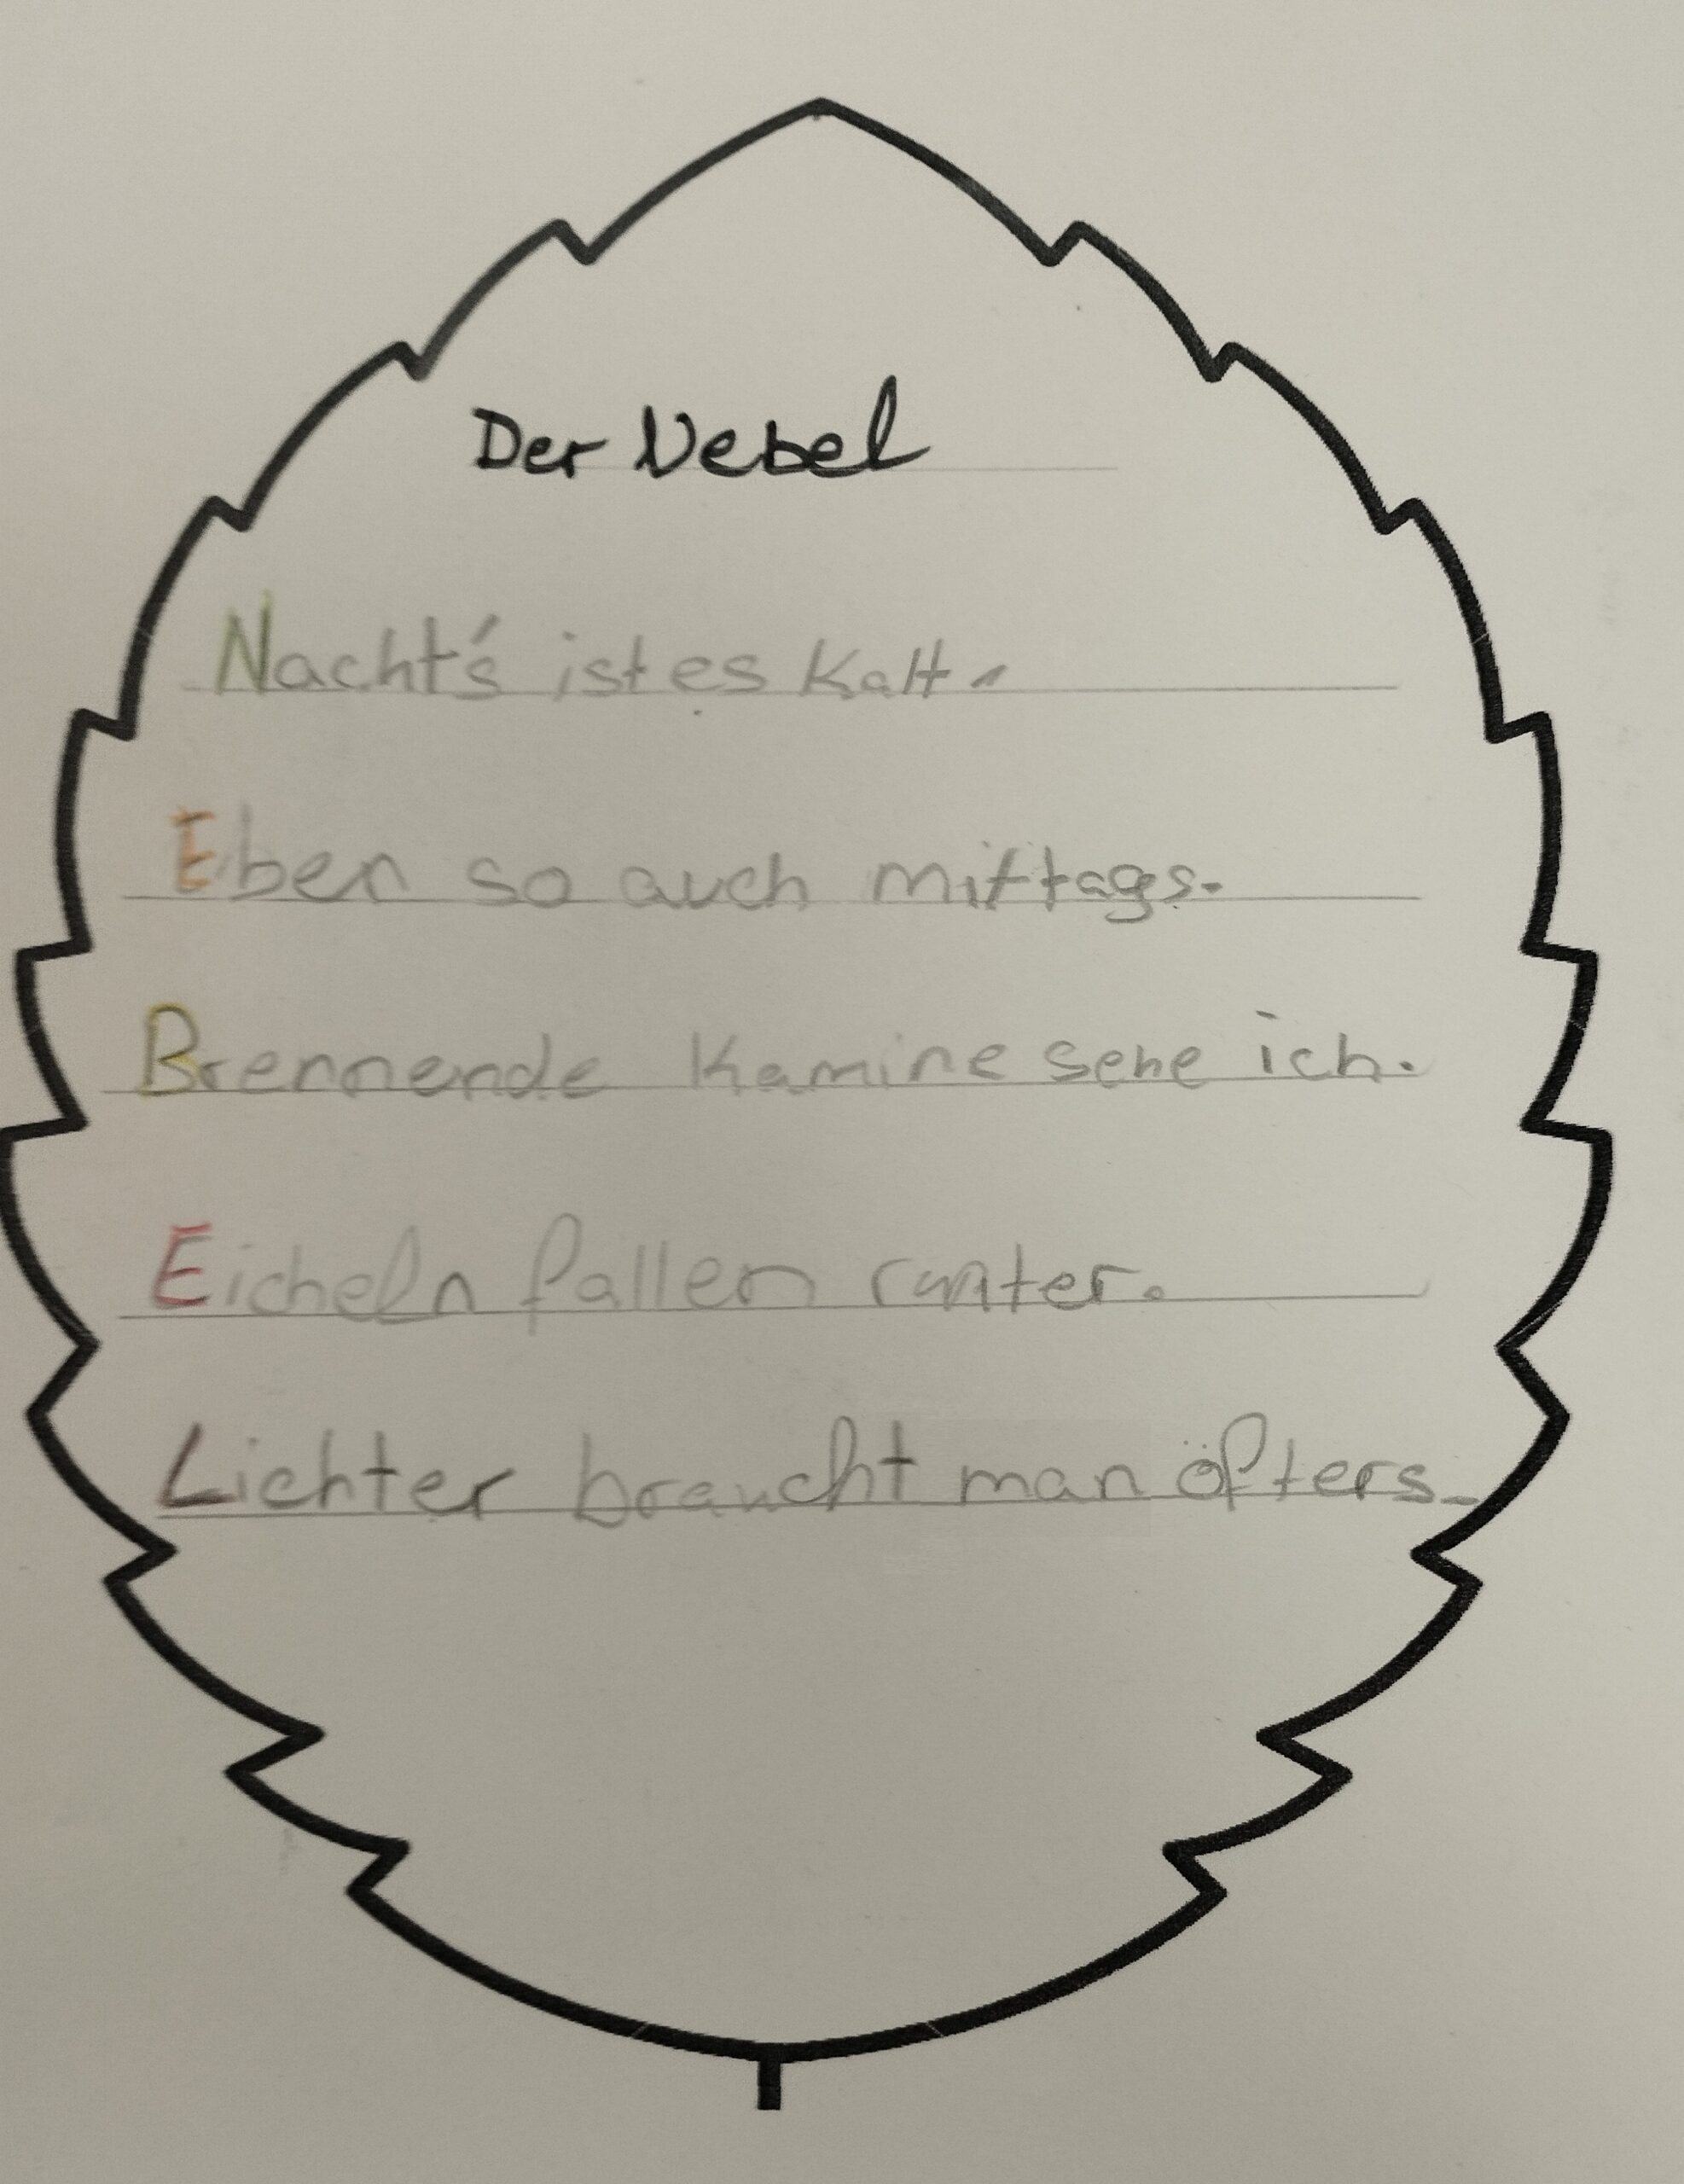 Der Nebel
Nacht's ist es Kalt.
Eben so auch mittags.
Brennende Kamine sehe ich.
Eicheln fallen runter.
Lichter braucht man öfters.